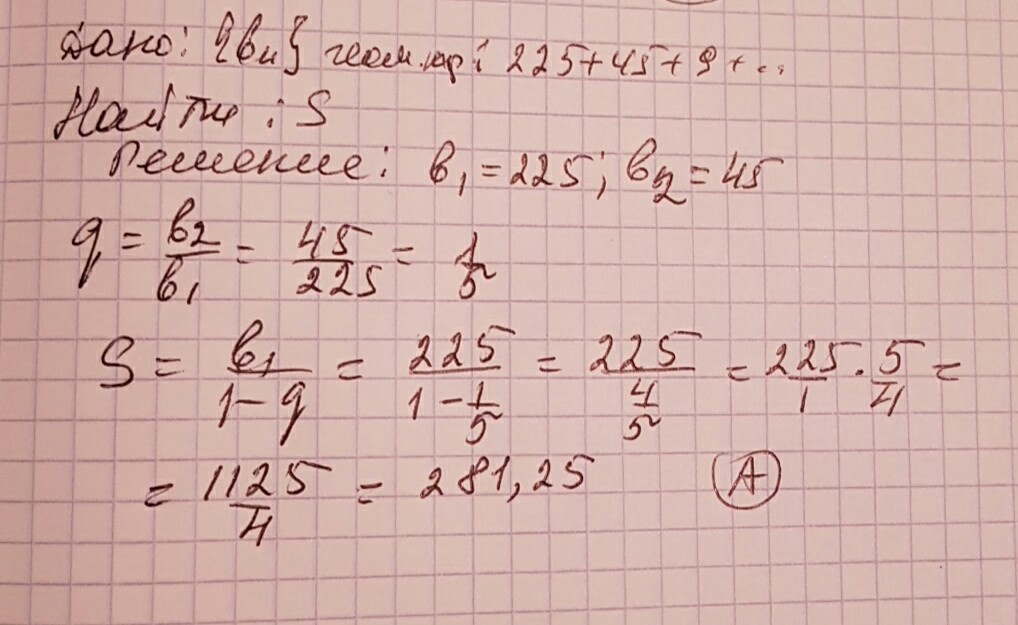 Дано: {bn} геом.пр: 225+45+9+...
Найти: S
Решение: b₁=225; b₂=45
q = b₂/b₁ = 45/225 = 1/5
S = b₁/(1-q) = 225/(1-1/5) = 225/(4/5) = 225/1 · 5/4 =
= 1125/4 = 281,25 (A)